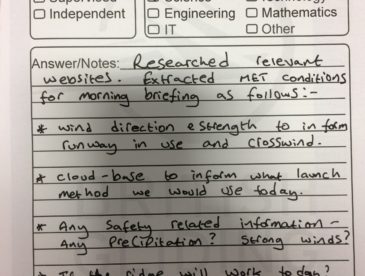 Supervised
☐ Independent
☐ Engineering
☐ IT
Technology
☐ Mathematics
☐ Other
Answer/Notes: Researched relevant
websites. Extracted MET conditions
for morning briefing as follows:-
* wind direction & strength to inform
runway in use and crosswind.
* cloud-base to inform what launch
method we would use today.
* Any safety related information -
Any Precipitation? Strong winds?
* If the ridge will work today?